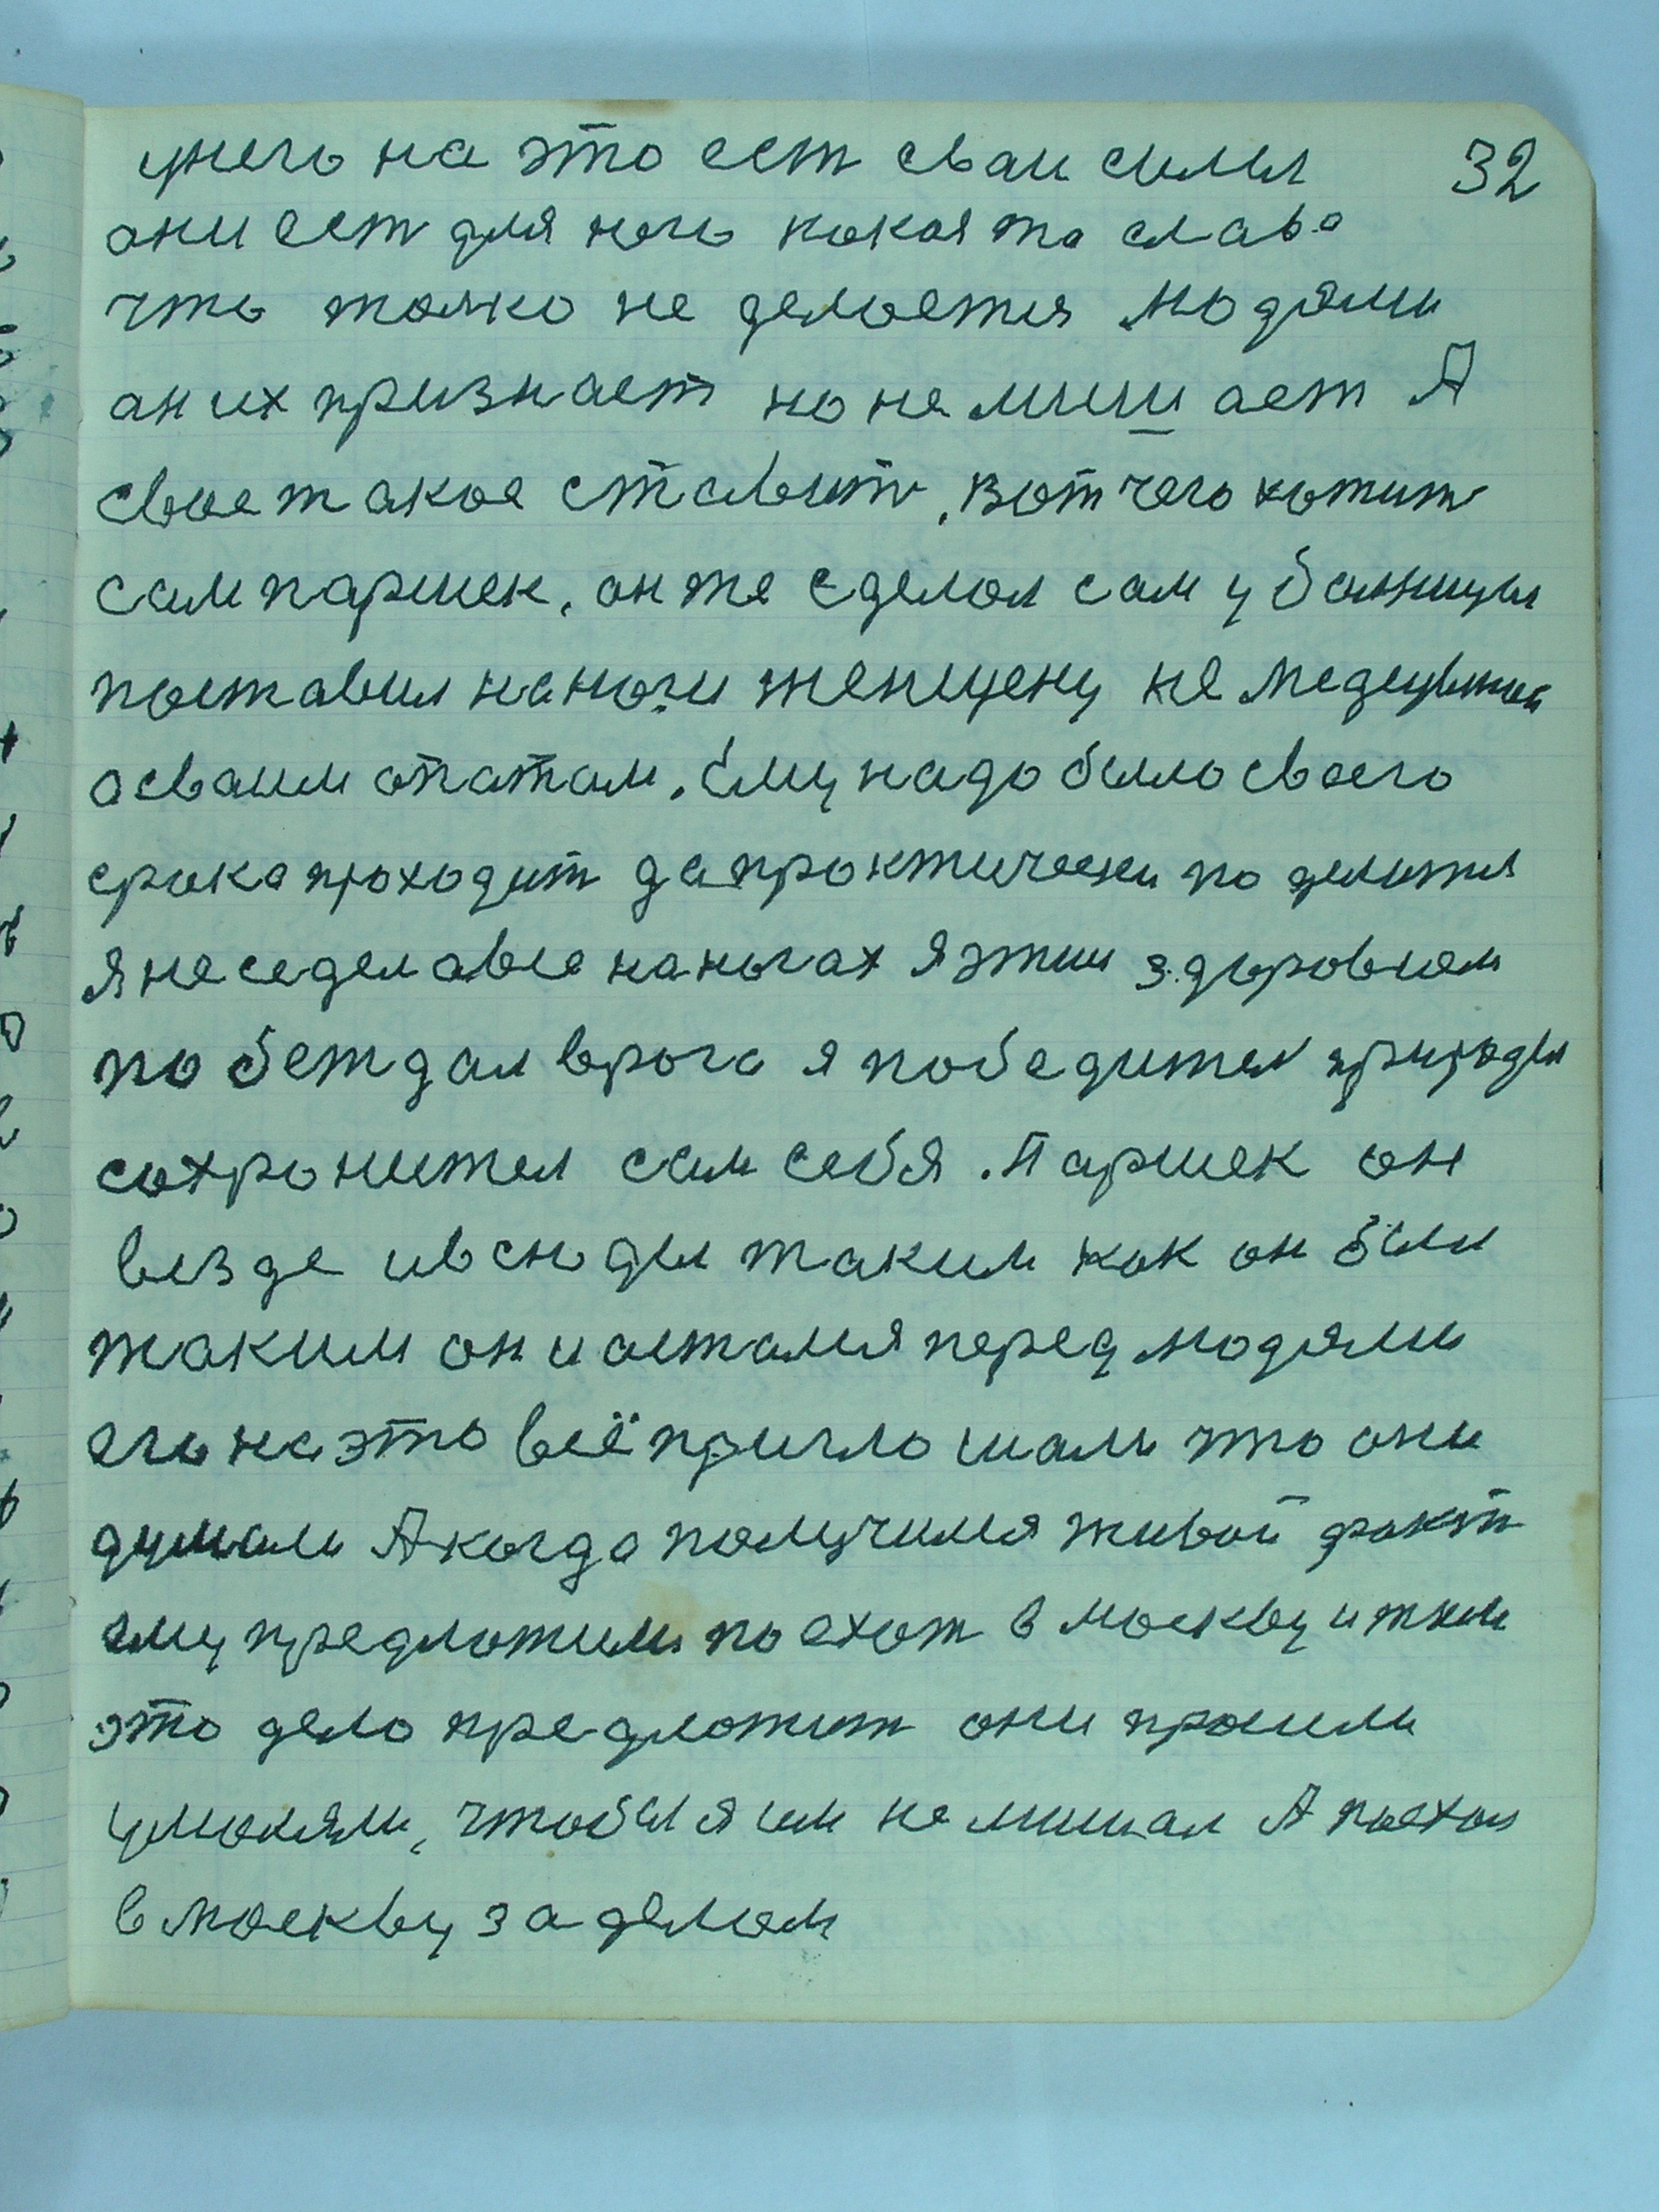 32
унего на это ест сваи силы
они ест для ного кокая та слава
что толко не делоется людями
аних признает но не мишает А
свое такое ставит, вот чего хотит
сам паршек, он же сделол сам у болницы
поставил на ноги женщену не медецыной
а сваим опатам. Ему надо было своего
срока проходит да проктически поделится
я неседелавсе на ногах я этим здоровием
побеждал врага я победител природы
сохронител сам себя. Паршек он
везде ивсюды таким как он был
таким он и астался перед людями
его на это всё приглошали что они
думали А когда получился живой факт
ему предложили поехат в москву и там
это дело предложит они просили
умоляли, чтобы я им не мишал А поехал
в москву за делом